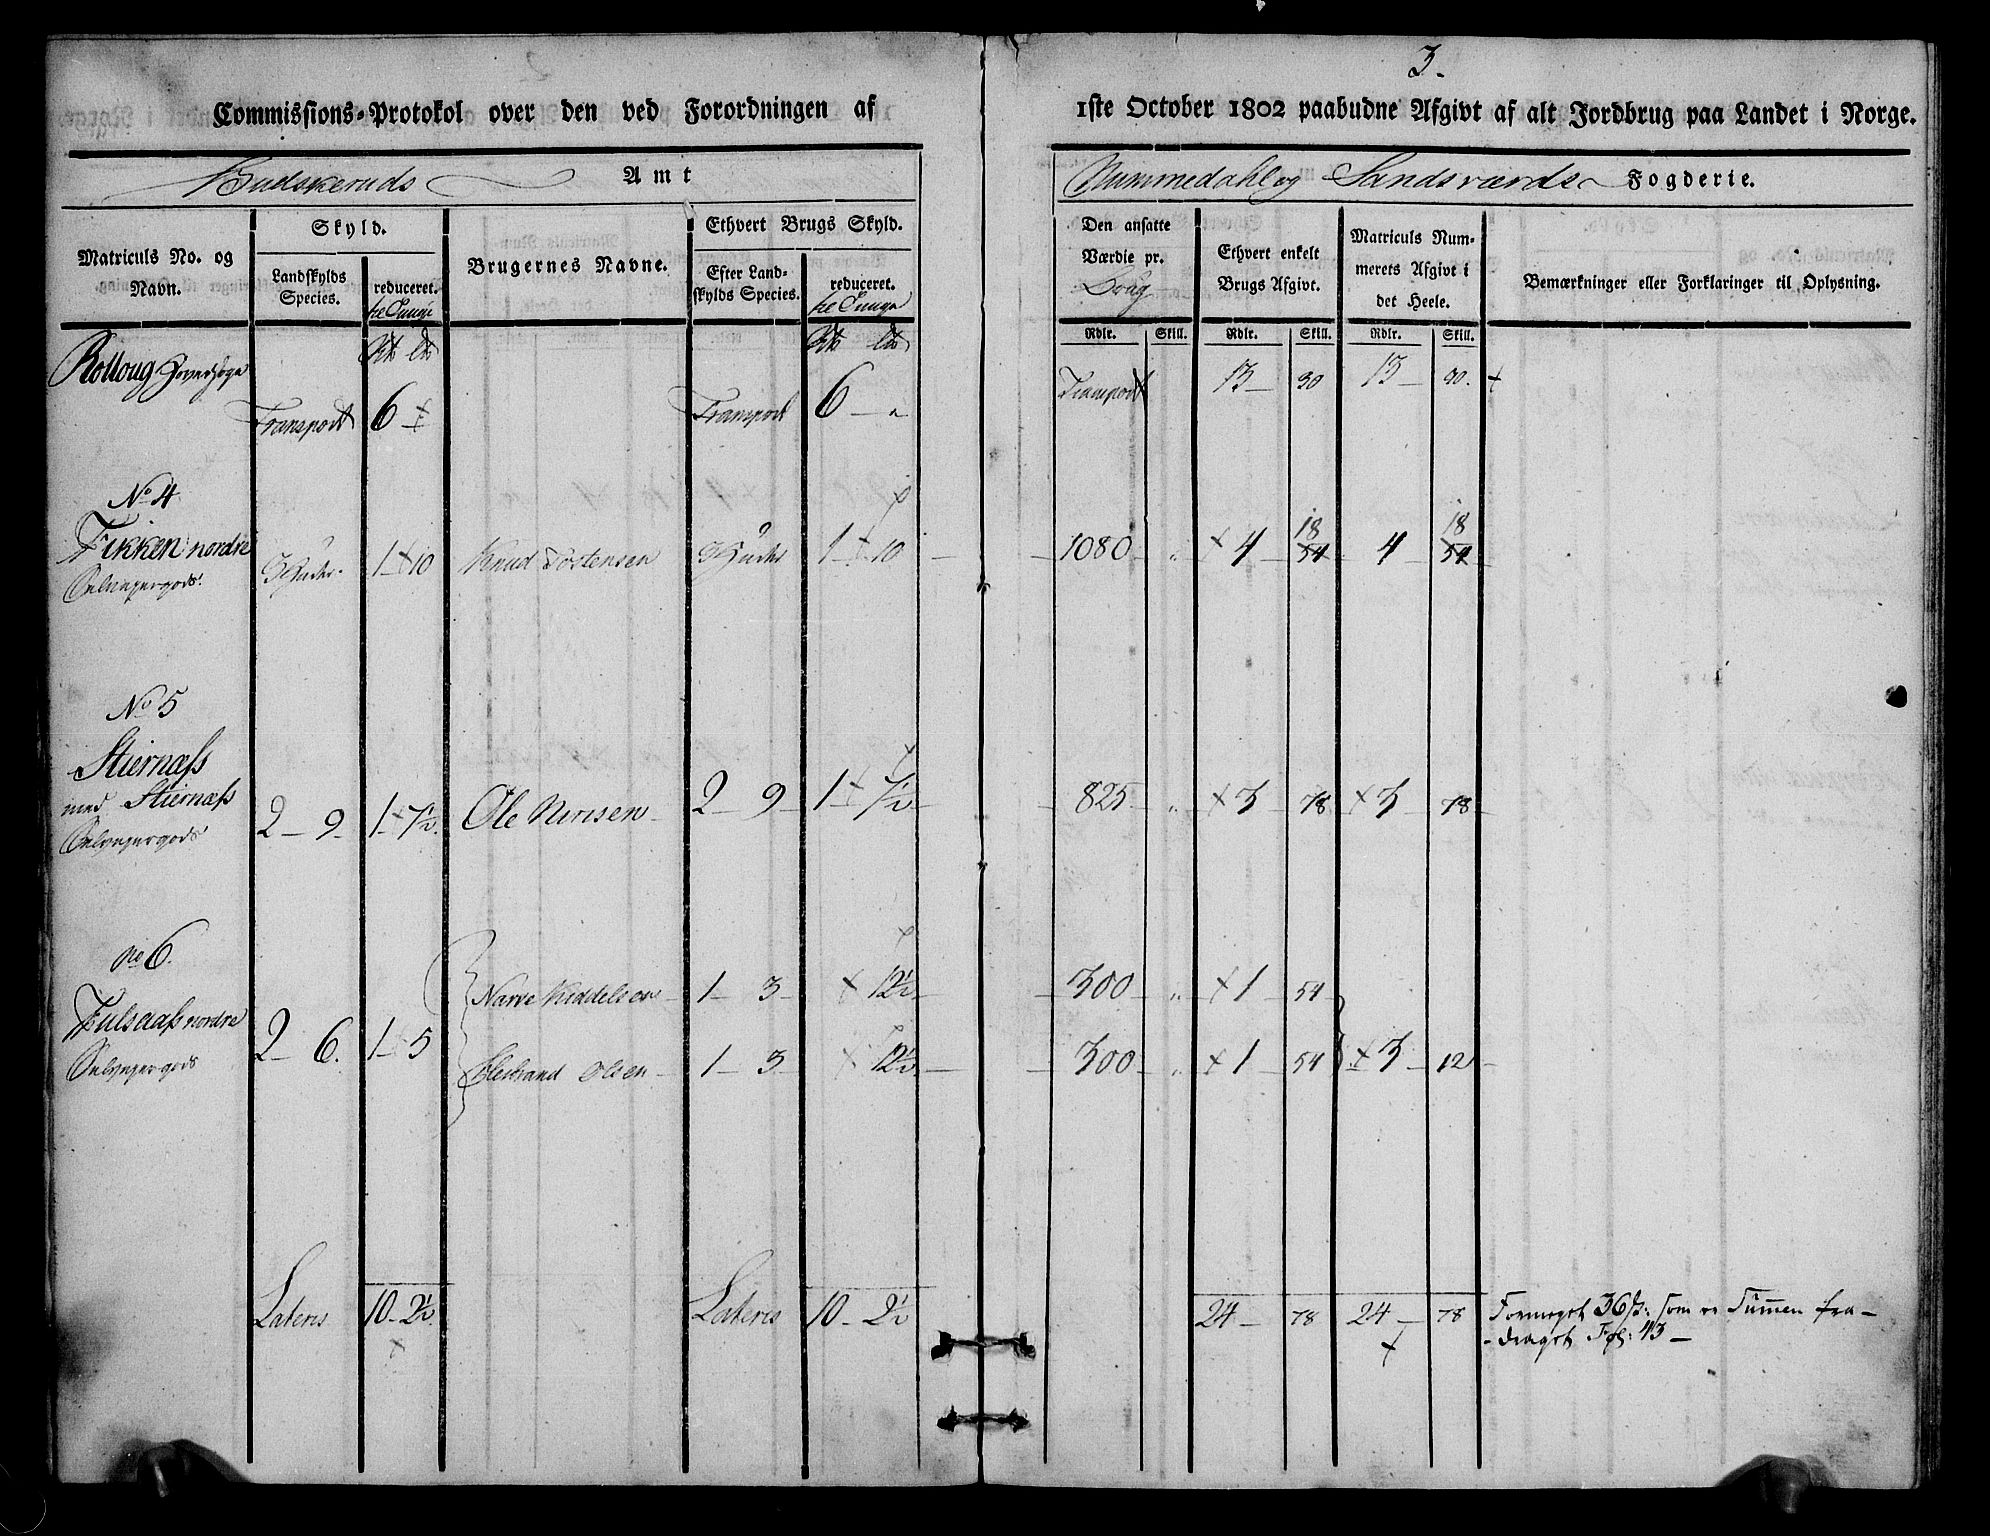 3.
Commissions-Protokol over den ved Forordningen af 1ste October 1802 paabudne Afgivt af alt Jordbrug paa Landet i Norge.
Budskeruds Amt
Nummedahl og Sandsværds Fogderie.
Matriculs No. og Navn.
Skyld.
Landskylds Species.
reduceret.
Brugernes Navne.
Ethvert Brugs Skyld.
Efter Landskylds Species.
reduceret.
Den ansatte Værdie pr. Brug
Ethvert enkelt Brugs Afgivt.
Matriculs Nummerets Afgivt i det Heele.
Bemærkninger eller Forklaringer til Oplysning.
Rdlr. Skill. Rdlr. Skill. Rdlr. Skill.
Rolloug Hovedsogn
Transport 6 Transport 6 Transport 13 30 13 30.
No 4
Fikken nordre 3 Huder 1 10 Knud Tostensen 3 Huder 1 10 1080 4 18 54 4 18 54
Selveyergods
No 5
Stiernæss
med Stiernæss 2 9 1 7½ Ole Nirisen 2 9 1 7½ 825 3 78 3 78
Selveyergods
No 6.
Narve Kiddelsen 1 3 12½ 300 1 54
nordre 2 6. 1 5
Selveyergods Olsen 1 3 12½ 300 1 54 3 12
Lateris 10 2½ Lateris 10 2½ 24 78 24 78 36 ß: som er Summen fra-
draget Fol: 43